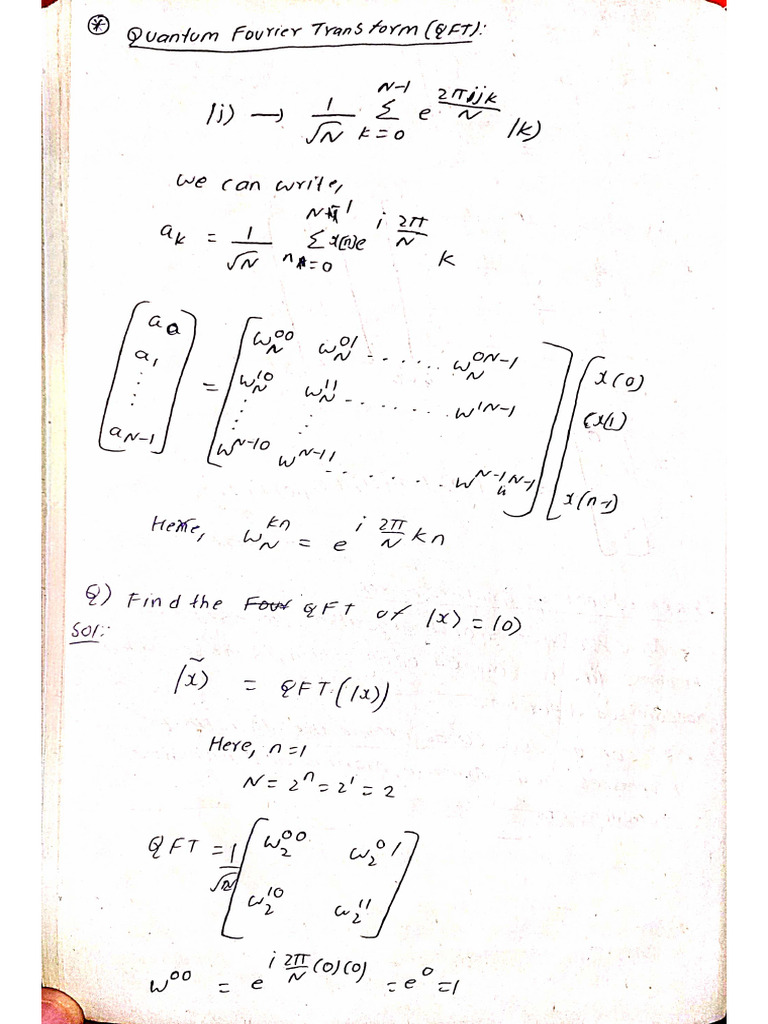 ⊛ Quantum Fourier Transform (QFT):
|j⟩ → 1/√N Σ_{k=0}^{N-1} e^{2πijk/N} |k⟩
we can write,
a_k = 1/√N Σ_{n=0}^{N-1} x(n) e^{i 2π/N} k
[a_0 a_1 ⋮ a_{N-1}] = [ω_N^{00} ω_N^{01} ...... ω_N^{0N-1}
ω_N^{10} ω_N^{11} ...... ω^{1N-1}
ω^{N-10} ω^{N-11} ...... ω^{N-1N-1}] [x(0) x(1) x(n-1)]
Here, ω_N^{kn} = e^{i 2π/N kn}
Q) Find the QFT of |x⟩ = |0⟩
Sol:
|x̃⟩ = QFT(|x⟩)
Here, n=1
N = 2^n = 2^1 = 2
QFT = 1/√2 [ω_2^{00} ω_2^{01}
ω_2^{10} ω_2^{11}]
ω^{00} = e^{i 2π/N (0)(0)} = e^0 = 1